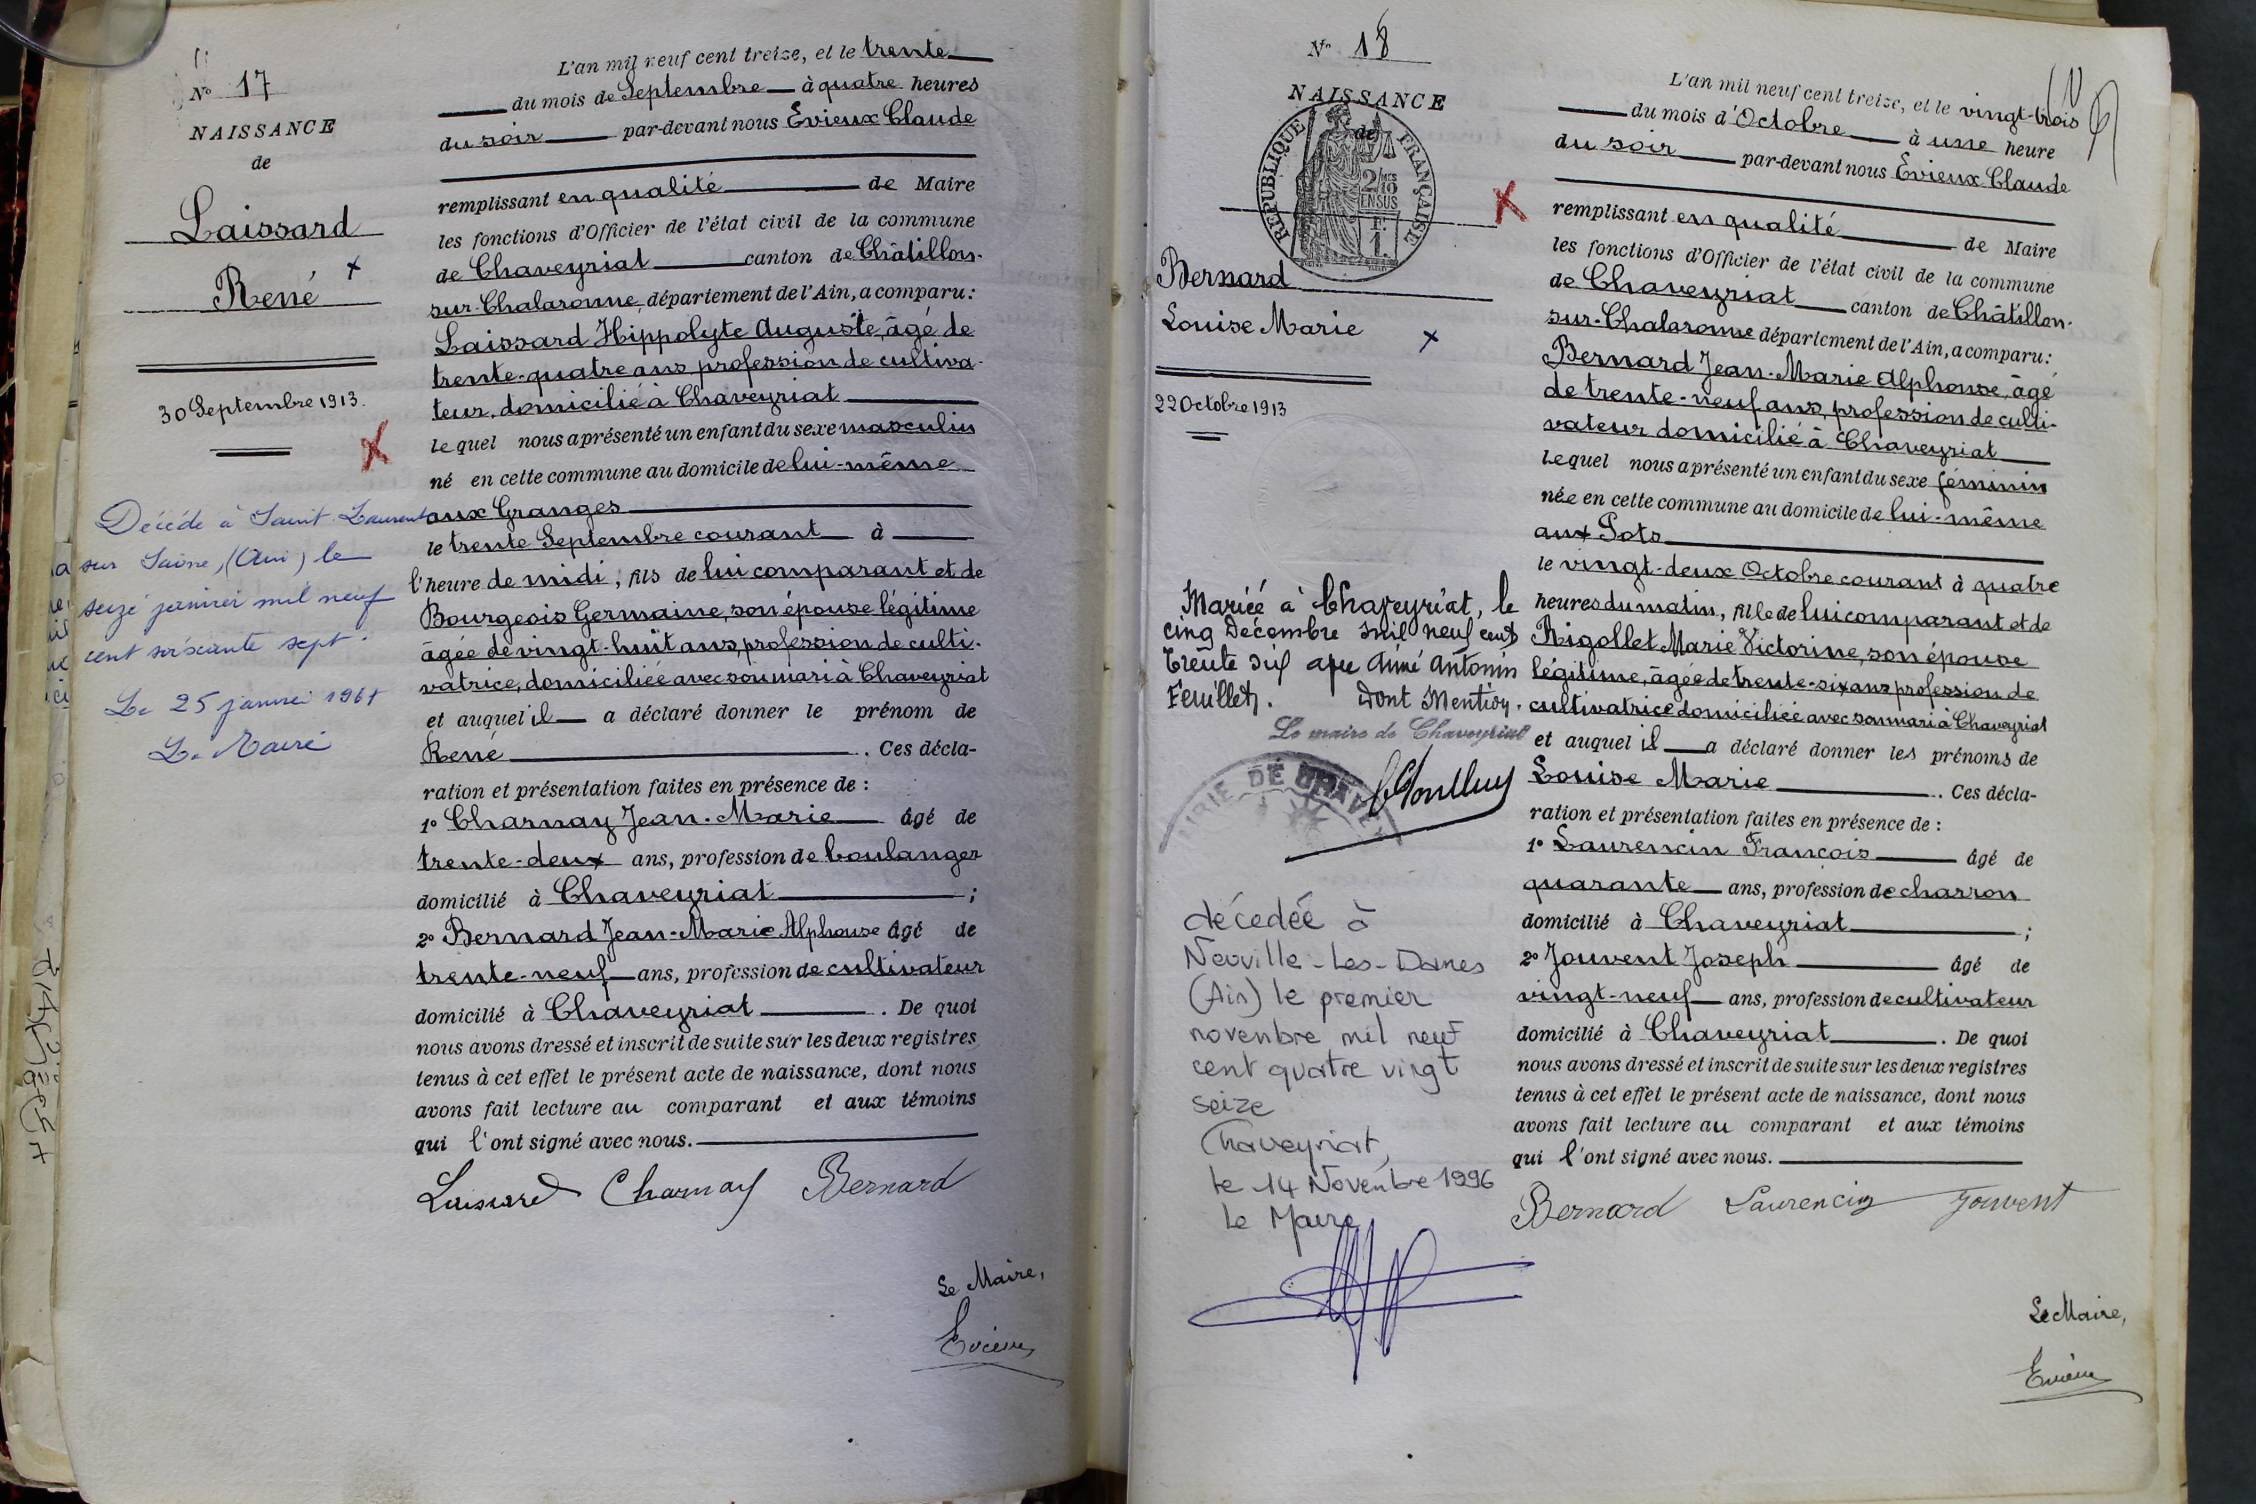 N° 17
NAISSANCE
de
Laissard
René
30 Septembre 1913.
Décédé à Saint Laurent
sur Saône, (Ain) le
seize janvier mil neuf
cent soixante sept.
Le 25 janvier 1967
Le Maire
L'an mil neuf cent treize, et le trente
du mois de Septembre à quatre heures
du soir par-devant nous Evieux Claude
remplissant en qualité de Maire
les fonctions d'Officier de l'état civil de la commune
de Chaveyriat canton de Châtillon-
sur-Chalaronne, département de l'Ain, a comparu :
Laissard Hippolyte Auguste, âgé de
trente-quatre ans, profession de cultiva-
teur, domicilié à Chaveyriat
lequel nous a présenté un enfant du sexe masculin
né en cette commune au domicile de lui-même
aux Granges
le trente Septembre courant à
l'heure de midi, fils de lui comparant et de
Bourgeois Germaine, son épouse légitime
âgée de vingt-huit ans, profession de culti-
vatrice, domiciliée avec son mari à Chaveyriat
et auquel il a déclaré donner le prénom de
René . Ces décla-
ration et présentation faites en présence de :
1° Charnay Jean-Marie âgé de
trente-deux ans, profession de boulanger
domicilié à Chaveyriat ;
2° Bernard Jean-Marie Alphonse âgé de
trente-neuf ans, profession de cultivateur
domicilié à Chaveyriat . De quoi
nous avons dressé et inscrit de suite sur les deux registres
tenus à cet effet le présent acte de naissance, dont nous
avons fait lecture au comparant et aux témoins
qui l'ont signé avec nous.
Laissard Charnay Bernard
Le Maire,
Evieux
N° 18
NAISSANCE
de
REPUBLIQUE FRANÇAISE
2/10 EN SUS
F.
1.
Bernard
Louise Marie
22 Octobre 1913
Mariée à Chaveyriat, le
cinq Décembre mil neuf cent
trente six avec Aimé Antonin
Feuillet. Dont Mention.
Le maire de Chaveyriat
MAIRIE DE CHAVEY
décedée à
Neuville-Les-Dames
(Ain) le premier
novembre mil neuf
cent quatre vingt
seize
Chaveyriat,
le 14 Novembre 1996
Le Maire
L'an mil neuf cent treize, et le vingt-trois
du mois d'Octobre à une heure
du soir par-devant nous Evieux Claude
remplissant en qualité de Maire
les fonctions d'Officier de l'état civil de la commune
de Chaveyriat canton de Châtillon-
sur-Chalaronne département de l'Ain, a comparu :
Bernard Jean-Marie Alphonse, âgé
de trente-neuf ans, profession de culti-
vateur domicilié à Chaveyriat
lequel nous a présenté un enfant du sexe féminin
née en cette commune au domicile de lui-même
aux Pots
le vingt-deux Octobre courant à quatre
heures du matin, fille de lui comparant et de
Rigollet Marie Victorine, son épouse
légitime, âgée de trente-six ans profession de
cultivatrice domiciliée avec son mari à Chaveyriat
et auquel il a déclaré donner les prénoms de
Louise Marie . Ces décla-
ration et présentation faites en présence de :
1° Laurencin François âgé de
quarante ans, profession de charron
domicilié à Chaveyriat ;
2° Jouvent Joseph âgé de
vingt-neuf ans, profession de cultivateur
domicilié à Chaveyriat . De quoi
nous avons dressé et inscrit de suite sur les deux registres
tenus à cet effet le présent acte de naissance, dont nous
avons fait lecture au comparant et aux témoins
qui l'ont signé avec nous.
Bernard Laurencin Jouvent
Le Maire,
Evieux